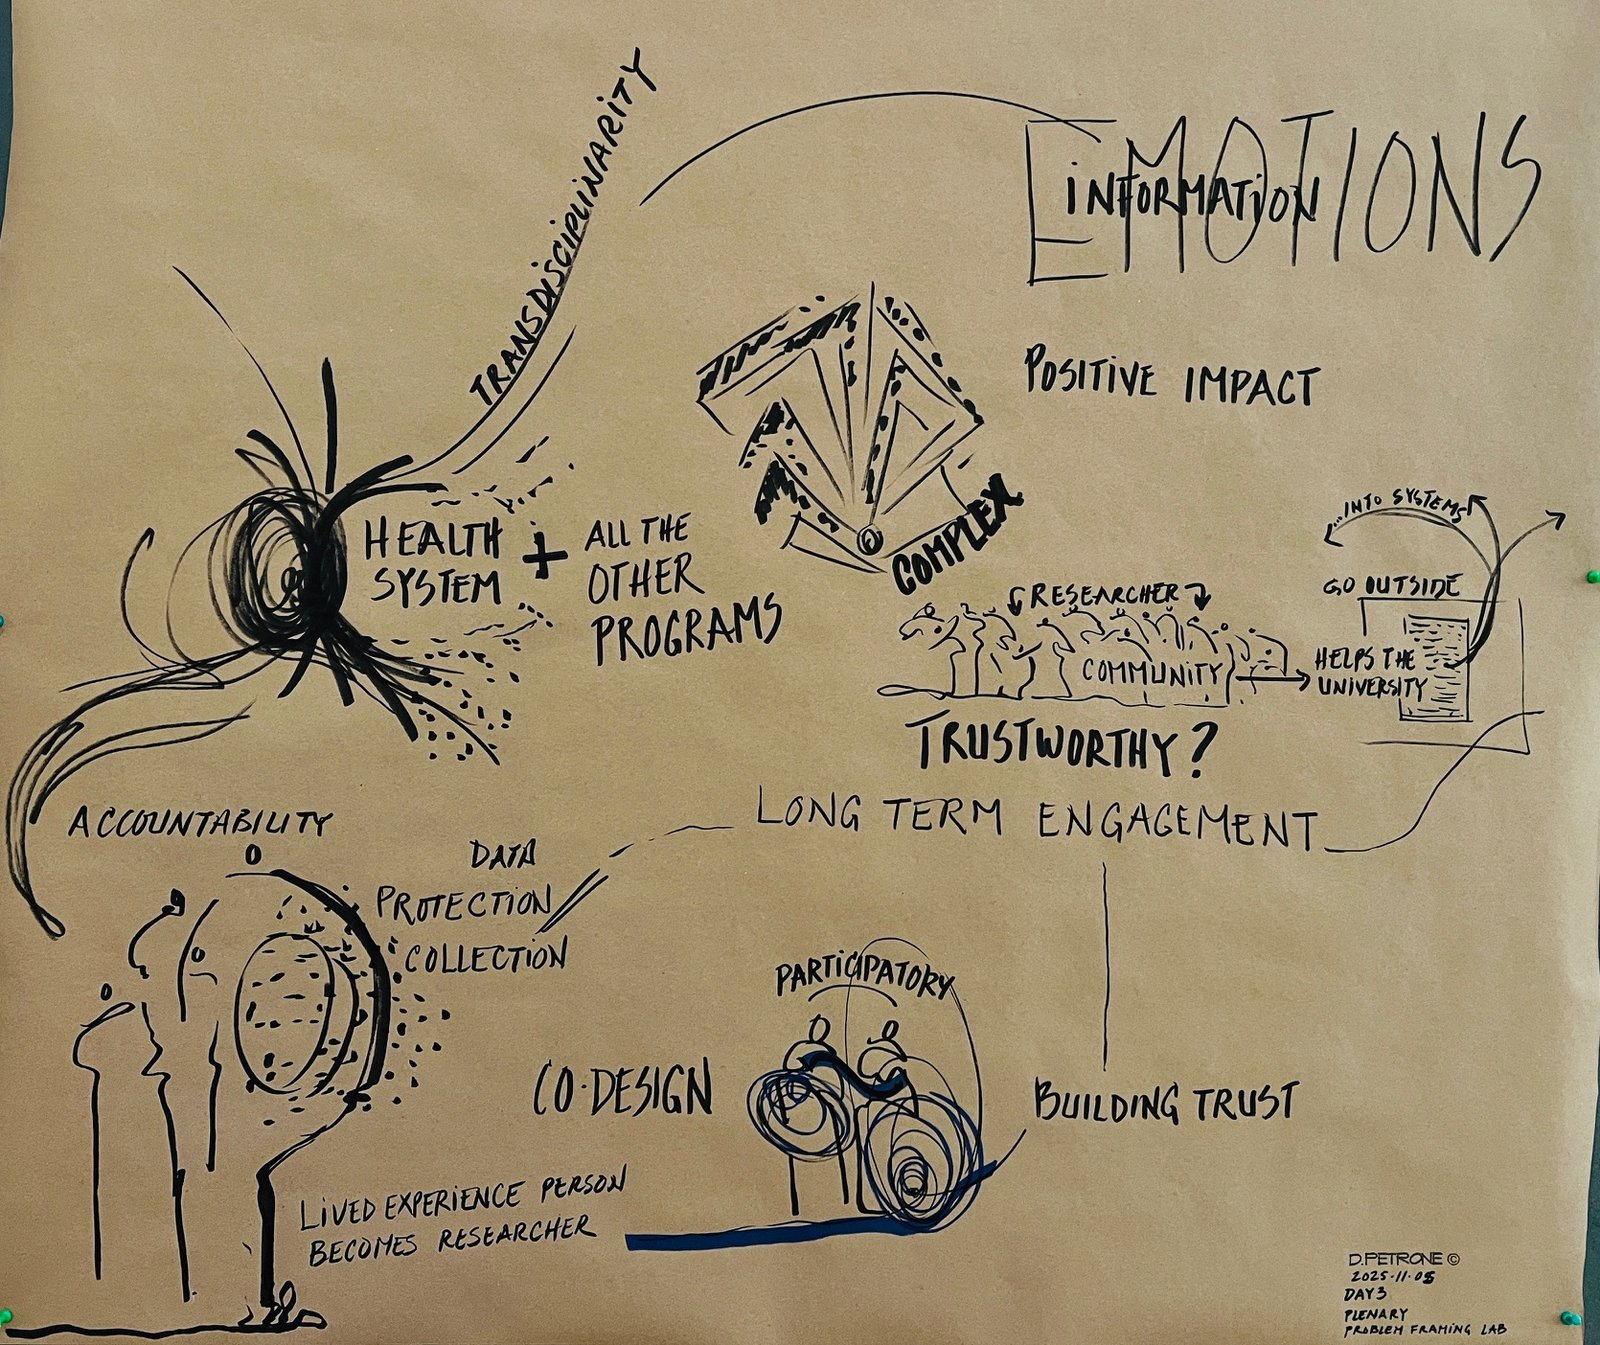 TRANSDISCIPLINARITY
EMOTIONS
INFORMATION
POSITIVE IMPACT
HEALTH
SYSTEM
+
ALL THE
OTHER
PROGRAMS
COMPLEX
RESEARCHER
COMMUNITY
...INTO SYSTEMS
GO OUTSIDE
HELPS THE
UNIVERSITY
TRUSTWORTHY?
LONG TERM ENGAGEMENT
ACCOUNTABILITY
DATA
PROTECTION
COLLECTION
PARTICIPATORY
CO-DESIGN
BUILDING TRUST
LIVED EXPERIENCE PERSON
BECOMES RESEARCHER
D.PETRONE ©
2025-11-05
DAY 3
PLENARY
PROBLEM FRAMING LAB